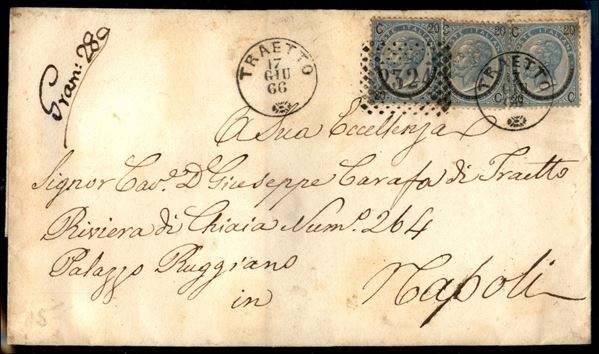 Gram: 280
TRAETTO
17
GIU
66
C 20
C 20
C 20
POSTE ITALIANE
2324
TRAETTO
C
A Sua Eccellenza
Signor Cav.e D. Giuseppe Carafa di Traetto
Riviera di Chiaia Num.o 264
Palazzo Ruggiano
in Napoli
15